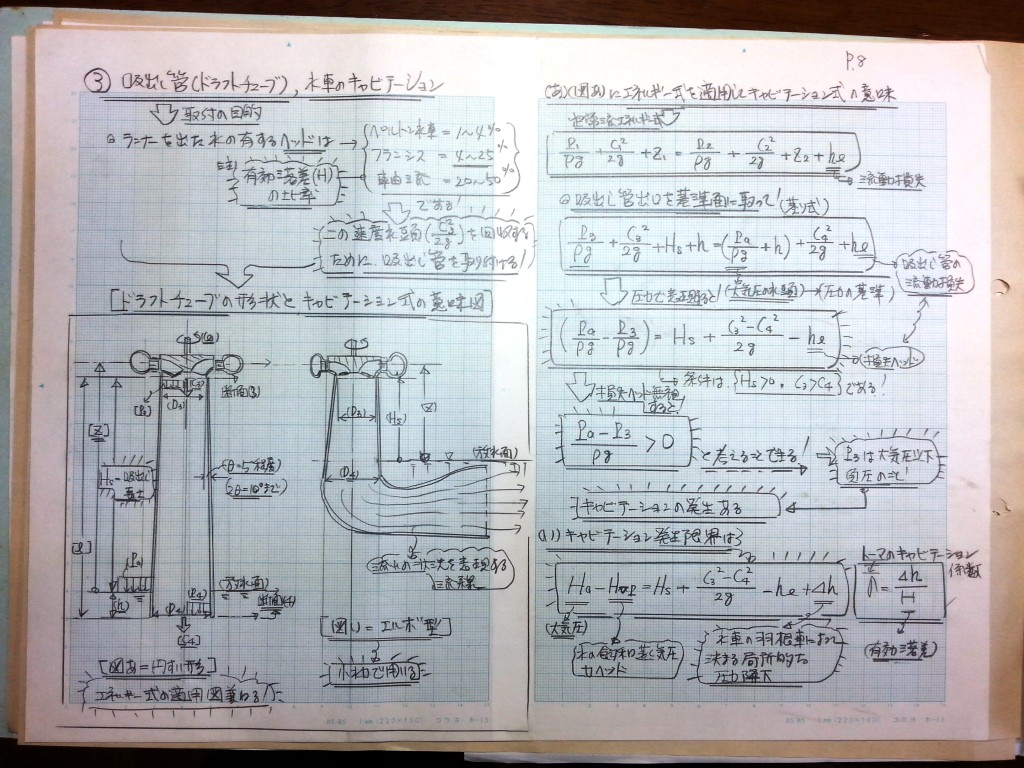 P.8
③ 吸出し管(ドラフトチューブ), 水車のキャビテーション
取付の目的
ランナーを出た水の有するヘッドは
ペルトン水車 = 1〜4%
フランシス = 4〜25%
軸流 = 20〜50%
註) 有効落差(H)
の比率
である!
この速度水頭(C₃²/2g)を回収する
ために吸出し管を取り付ける!
[ドラフトチューブの形状とキャビテーション式の意味図]
[P₃]
(C₃)
(D₃)
断面(3)
[Z]
Hs = 吸出し
高さ
(θ=5°程度)
(2θ=10°まで)
[l]
[Pa]
[h]
(放水面)
断面(4)
D₄
[C₄]
[図あ=円すい形]
エネルギー式の適用(図兼ねる)
(D₃)
(Hs)
(Z)
(放水面)
(D₄)
流れの状況を表現する
流線
[図い = エルボ型]
水力で用いる
(あ)(図あ)にエネルギー式を適用してキャビテーション式の意味
定常流エネルギー式
P₁/ρg + C₁²/2g + Z₁ = P₂/ρg + C₂²/2g + Z₂ + he
流動損失
吸出し管出口を基準面に取って!(基の式)
P₃/ρg + C₃²/2g + Hs + h = (Pa/ρg + h) + C₄²/2g + he
吸出し管の
流動損失
圧力で整理すると (大気圧の水頭) → (圧力の基準)
(Pa/ρg − P₃/ρg) = Hs + (C₃²−C₄²)/2g − he
損失ヘッド
条件は {Hs>0, C₃>C₄} である!
損失ヘッド無視
すると!
(Pa − P₃)/ρg > 0
と考えることできる!
P₃は大気圧以下
負圧のこと!
キャビテーションの発生ある
(い) キャビテーション発生限界は?
Ha − Hvap = Hs + (C₃²−C₄²)/2g − he + Δh
(大気圧)
水の飽和蒸気圧
力ヘッド
水車の羽根車によって
決まる局所的な
圧力降下
トーマのキャビテーション
係数
σ = Δh/H
(有効落差)